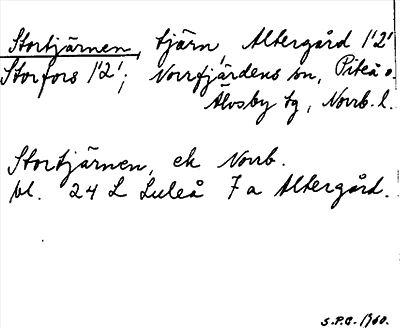 Stortjärnen, tjärn, Altergård 1'2'
Storfors 1'2'; Norrfjärdens sn, Piteå o.
Älvsby tg, Norrb. l.
Stortjärnen, ek Norrb.
bl. 24 L Luleå 7a Altergård.
S.P.B. 1960.